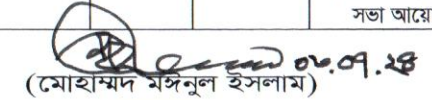 সভা আয়ে
০৮.০৭.২৪
(মোহাম্মদ মঈনুল ইসলাম)